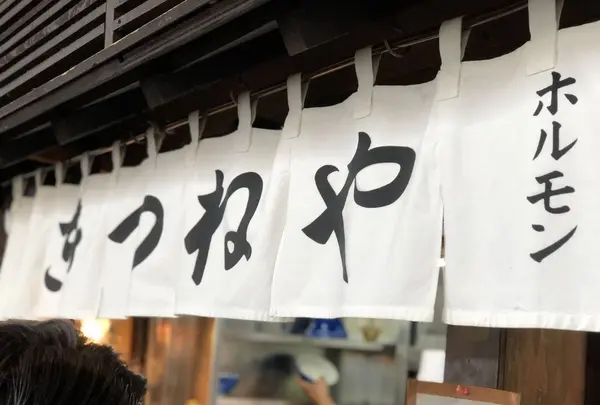 きつねや
ホルモン